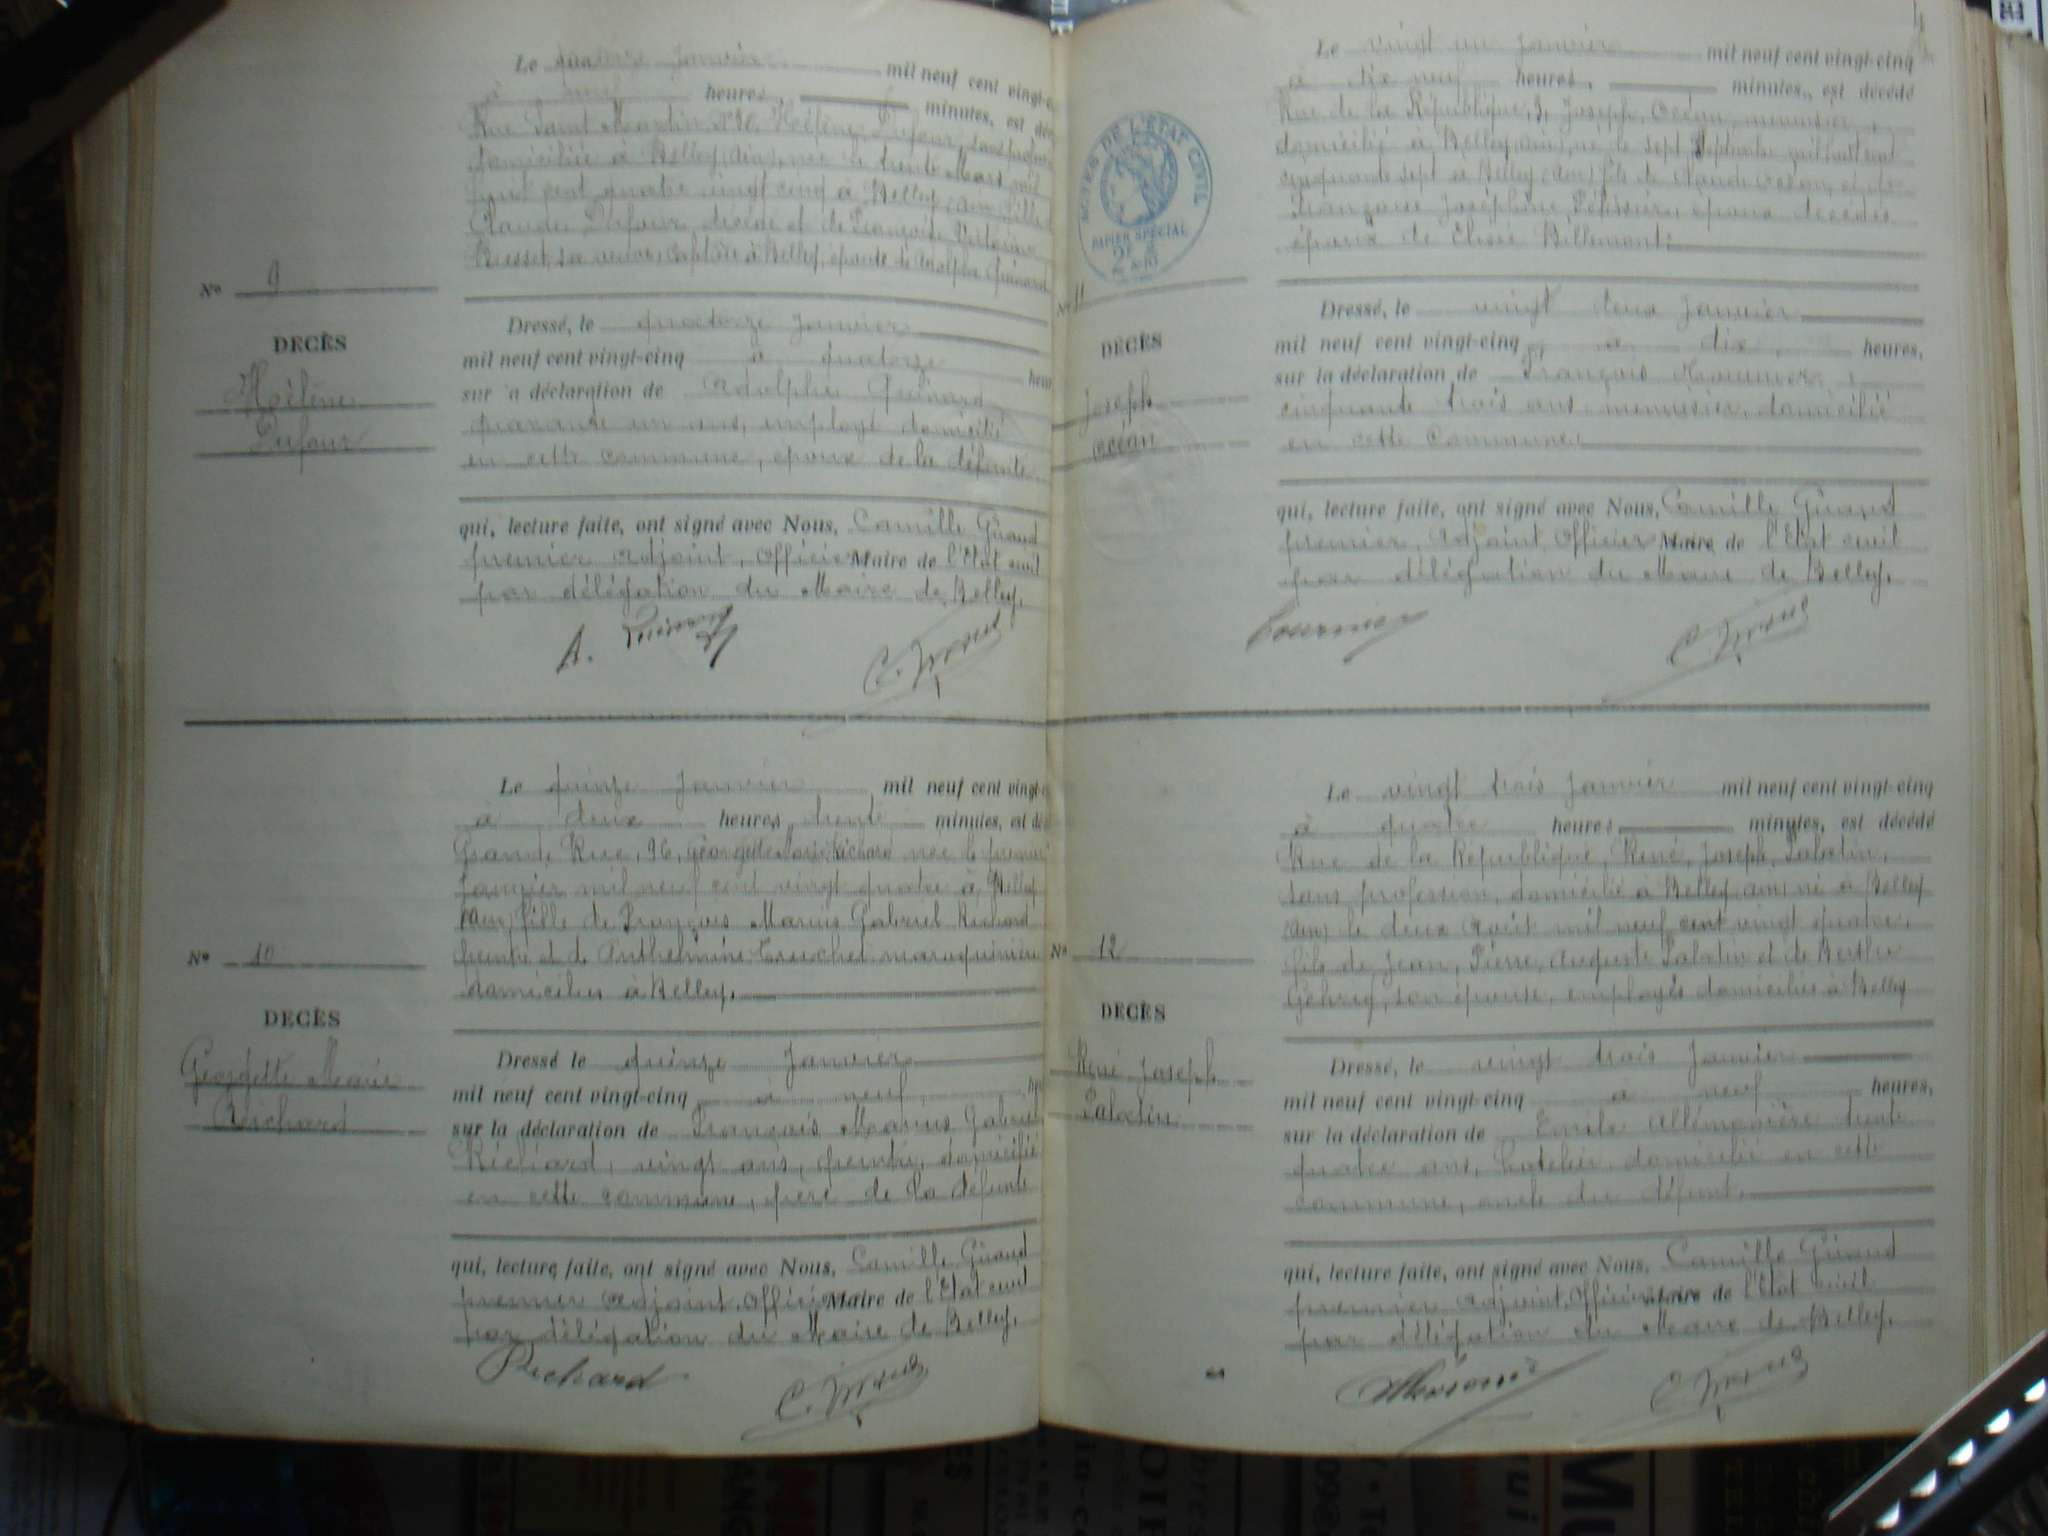 Le quatorze janvier mil neuf cent vingt-c
à heures, minutes, est déc
Rue Saint Martin Hélène Dufour, sans profes
domiciliée à Belley (Ain), née le trente Mars mil
huit cent quatre vingt cinq à Belley (Ain) fille
Claude Dufour, décédé et de Françoise
sa veuve, à Belley, épouse de Adolphe Guinard
No 9
DECÈS
Hélène
Dufour
Dressé, le quatorze janvier
mil neuf cent vingt-cinq à quatorze heur
sur a déclaration de Adolphe Guinard
quarante un ans, employé domicilié
en cette commune, époux de la défunte
qui, lecture faite, ont signé avec Nous, Camille Giraud
premier adjoint, officier Maire de l'Etat civil
par délégation du Maire de Belley.
A. Guinard
Le quinze janvier mil neuf cent vingt-c
à deux heures trente minutes, est déc
Grande Rue, 96, Georgette Marie Richard née le premier
janvier mil neuf cent vingt quatre à Belley
(Ain) fille de François Marius Gabriel Richard
peintre et de Anthelmine maroquinière
domiciliés à Belley.
No 10
DECÈS
Georgette Marie
Richard
Dressé le quinze janvier
mil neuf cent vingt-cinq à neuf he
sur la déclaration de François Marius Gabriel
Richard, vingt ans, peintre, domicilié
en cette commune, père de la défunte
qui, lecture faite, ont signé avec Nous, Camille Giraud
premier adjoint, officier Maire de l'Etat civil
par délégation du Maire de Belley.
Richard
Le vingt un janvier mil neuf cent vingt-cinq
à dix neuf heures, minutes, est décédé
Rue de la République, 3, Joseph, Océan, menuisier,
domicilié à Belley (Ain), né le sept Septembre mil huit cent
cinquante sept à Belley (Ain) fils de Claude Océan, et de
Françoise Joséphine Pélissier, époux décédés
époux de Billemont.
ACTES DE L'ÉTAT CIVIL
PAPIER SPÉCIAL
No 11
DECÈS
Joseph
Océan
Dressé, le vingt deux janvier
mil neuf cent vingt-cinq à dix heures,
sur la déclaration de François
cinquante trois ans menuisier, domicilié
en cette Commune.
qui, lecture faite, ont signé avec Nous, Camille Giraud
premier, adjoint, officier Maire de l'Etat civil
par délégation du Maire de Belley.
Le vingt trois janvier mil neuf cent vingt-cinq
à quatre heures minutes, est décédé
Rue de la République, René, Joseph, Palatin,
sans profession, domicilié à Belley (Ain) né à Belley
(Ain) le deux août mil neuf cent vingt quatre,
fils de Jean, Pierre, Auguste Palatin et de Berthe
son épouse, employés domiciliés à Belley
No 12
DECÈS
René Joseph
Palatin
Dressé, le vingt trois janvier
mil neuf cent vingt-cinq à neuf heures,
sur la déclaration de Emile trente
quatre ans, domicilié en cette
commune, oncle du défunt.
qui, lecture faite, ont signé avec Nous, Camille Giraud
premier adjoint, officier Maire de l'Etat civil
par délégation du Maire de Belley.